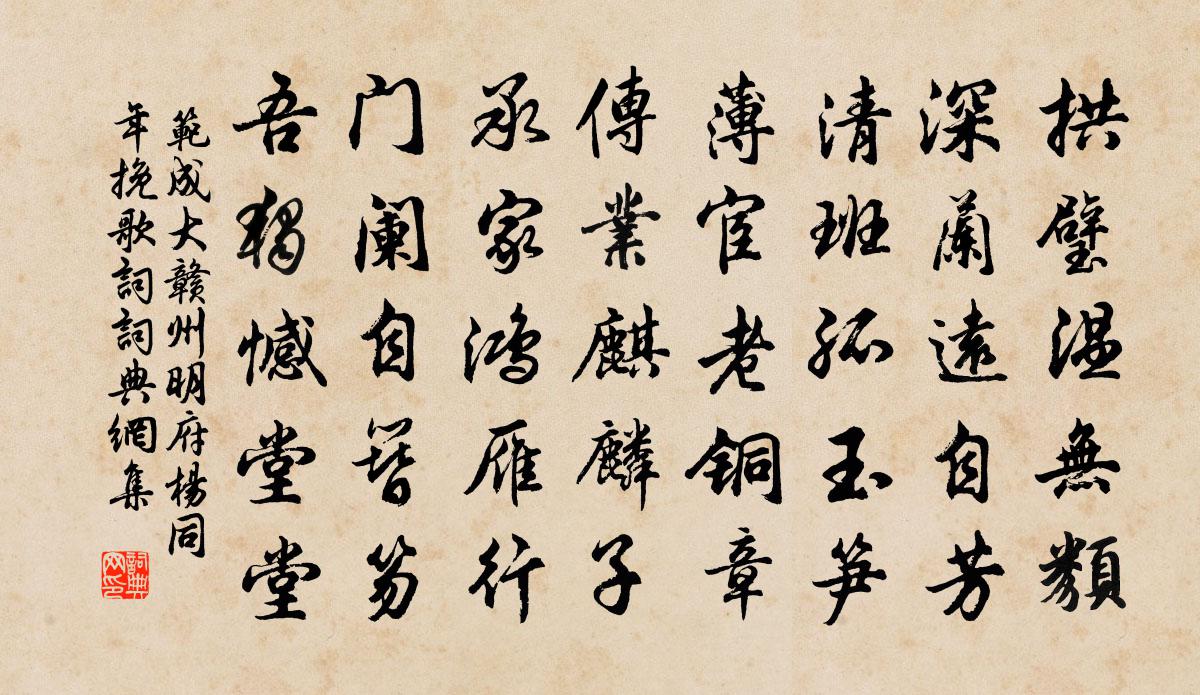 拱璧温無纇
深蘭遠自芳
清班孤玉笋
薄宦老銅章
傳業麒麟子
承家鴻雁行
门阑自簪笏
吾獨憾堂堂
範成大贛州明府楊同
年挽歌詞詞典網集
詞典
网印